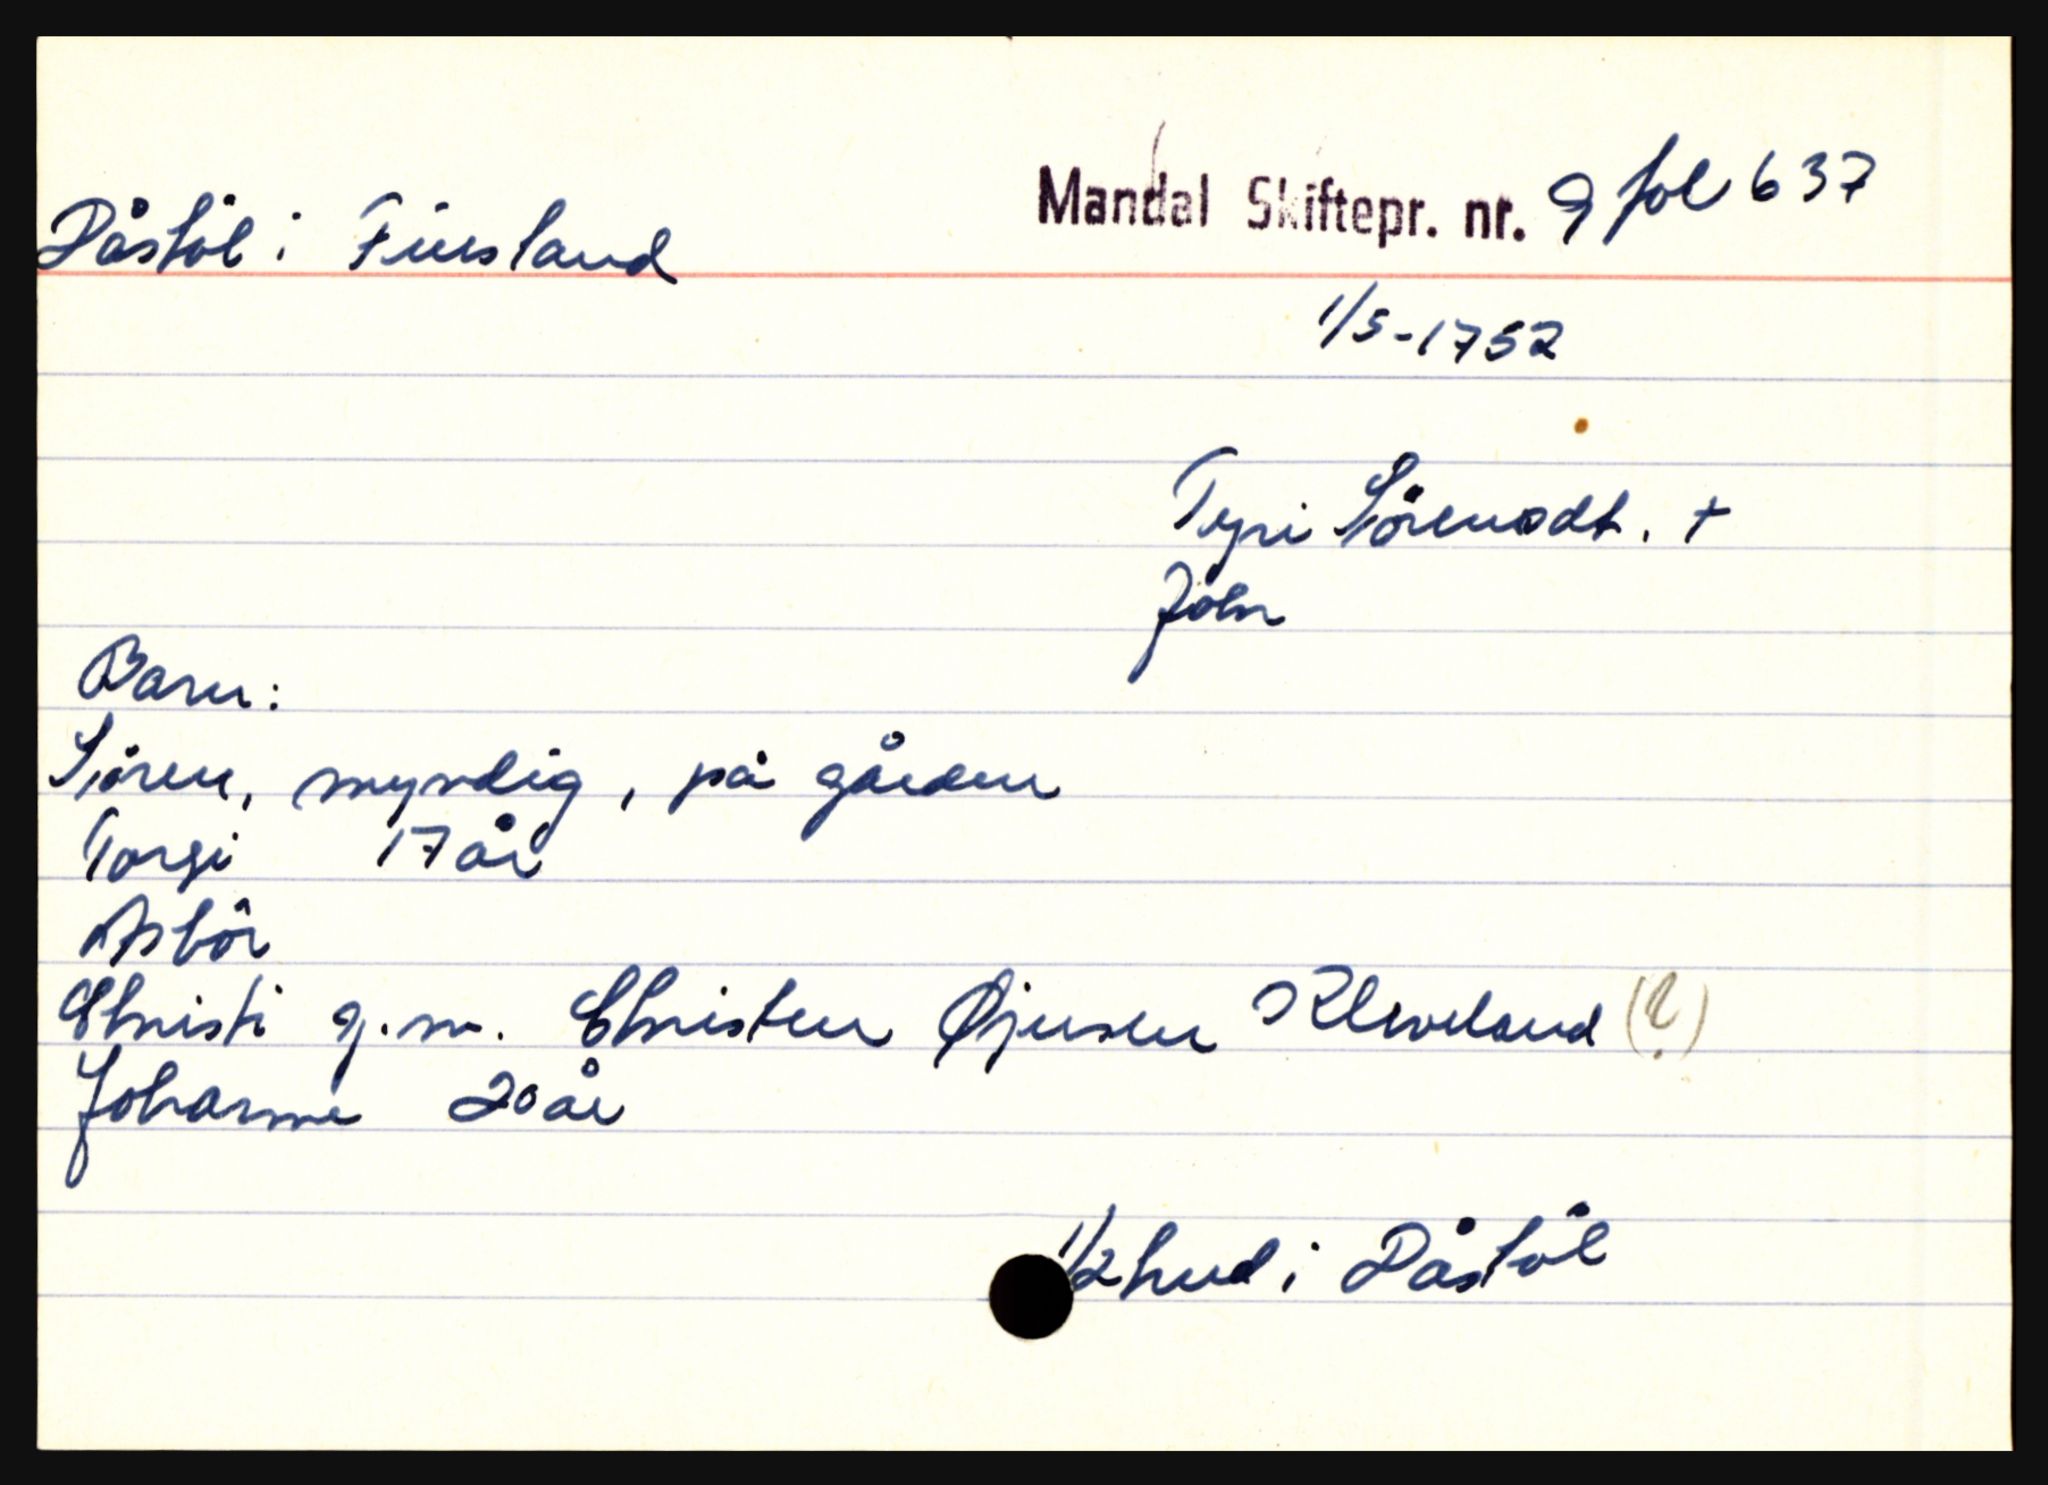 Dåstöl i Finsland
Mandal Skiftepr. nr. 9 fol 637
1/5-1752
Tyri Sörensdt. +
John
Barn:
Sören, myndig, på gården
Torgi 17 år
Asbör
Christi g.m. Christen Øjusen Kleveland (?)
Johanne 20 år
1/2 hud i Dåstöl